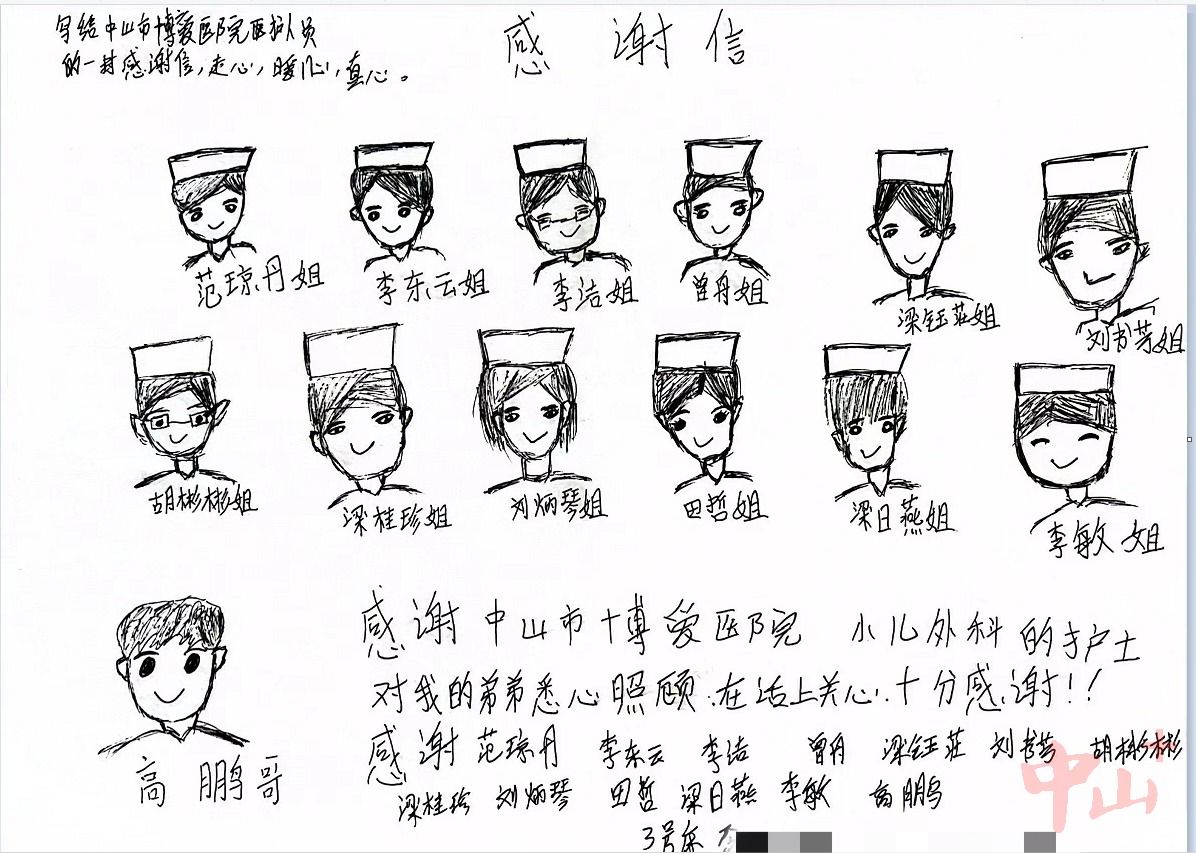 感谢信
写给中山市博爱医院医护人员
的一封感谢信，走心，暖心，真心。
范琼丹姐 李东云姐 李洁姐 曾舟姐 梁钰莊姐 刘书芳姐
胡彬彬姐 梁桂珍姐 刘炳琴姐 田哲姐 梁日燕姐 李敏姐
高鹏哥
感谢中山市博爱医院 小儿外科的护士
对我的弟弟悉心照顾.在活上关心.十分感谢!!
感谢 范琼丹 李东云 李洁 曾舟 梁钰莊 刘书芳 胡彬彬
梁桂珍 刘炳琴 田哲 梁日燕 李敏 高鹏
3号床
中山